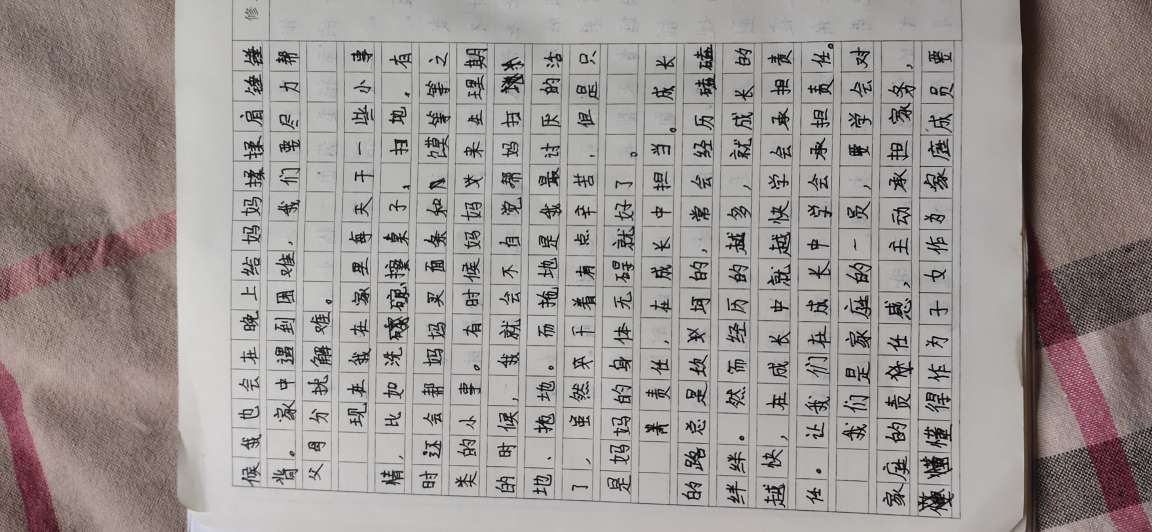 候我也会在晚上给妈妈揉揉肩锤锤
背。家中遇到困难，我们要尽力帮
父母分扰解难。
现在我在家里每天干一些小事
情，比如洗碗擦桌子，扫地。有
时还会帮妈妈买面条和馍等等之
类的小事。有时候妈妈又来生理期
的时候，我就会不自觉帮妈扫
地、拖地。而拖地是我最讨厌的活
了，虽然来干着有点辛苦，但是只
是妈妈的身体无碍就好了。
责任，在成长中担当。成长
的路总是坎坷的，常会经历磕磕
绊绊。然而经历的越多，就成长的
越快，在成长中就越快学会承担责
任。让我们在成长中学会承担责任。
我们是家庭的一员，要学会对
家庭的责任感，主动承担家务，
懂得作为子女作为家庭成员要